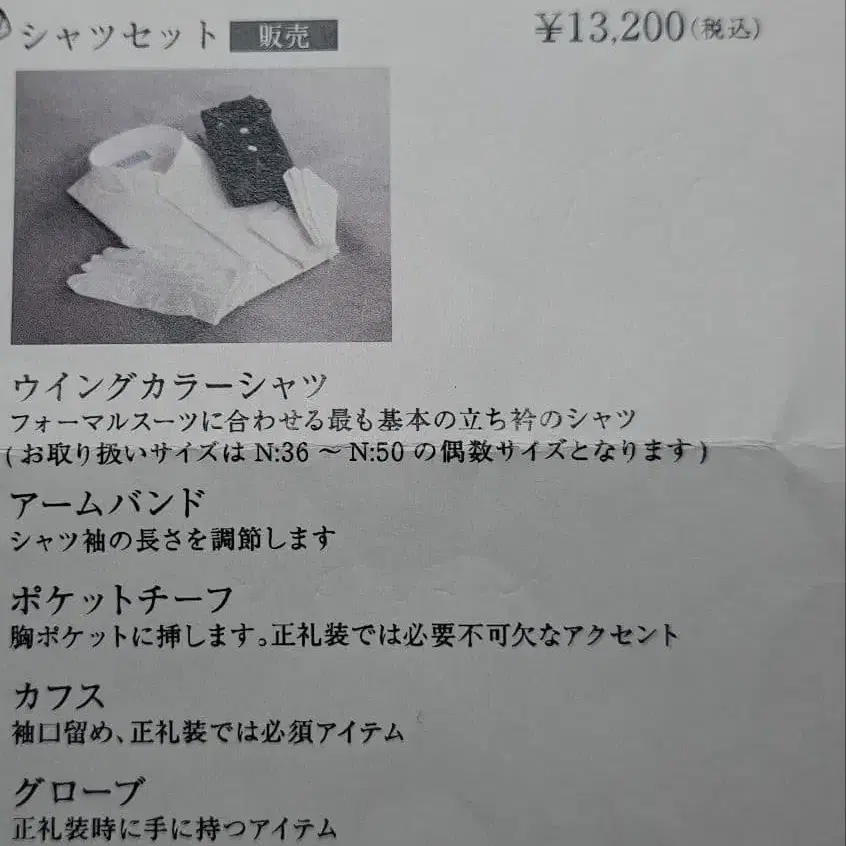 シャツセット 販売 ¥13,200(税込)
ウイングカラーシャツ
フォーマルスーツに合わせる最も基本の立ち衿のシャツ
(お取り扱いサイズは N:36 ～ N:50 の偶数サイズとなります)
アームバンド
シャツ袖の長さを調節します
ポケットチーフ
胸ポケットに挿します。正礼装では必要不可欠なアクセント
カフス
袖口留め、正礼装では必須アイテム
グローブ
正礼装時に手に持つアイテム